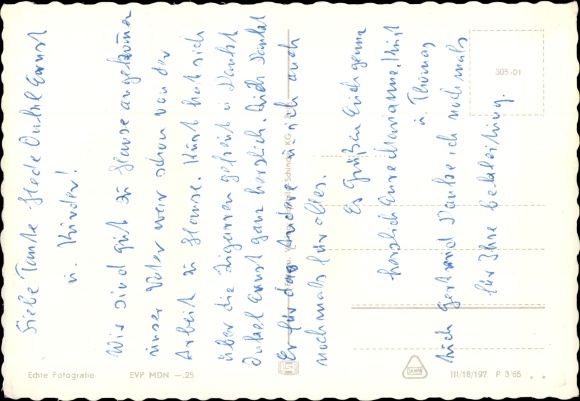 Liebe Tante Hede Onkel Ernst
u. Kinder!
Wir sind gut zu Hause angekommen
unser Vater war schon von der
Arbeit zu Hause. Kurt hat sich
über die Zigarren gefreut u. Dankt
Onkel Ernst ganz herzlich. Auch Dankt
Er für das Andere u. ich auch
nochmals für alles.
Es Grüßen Euch genau
herzlich Eure Marianne, Kurt
u. Thomas
Auch Gertraud Danke ich nochmals
für Ihre Begleitung.
305-01
Echte Fotografie
EVP MDN —.25
III/18/197 P 3/65